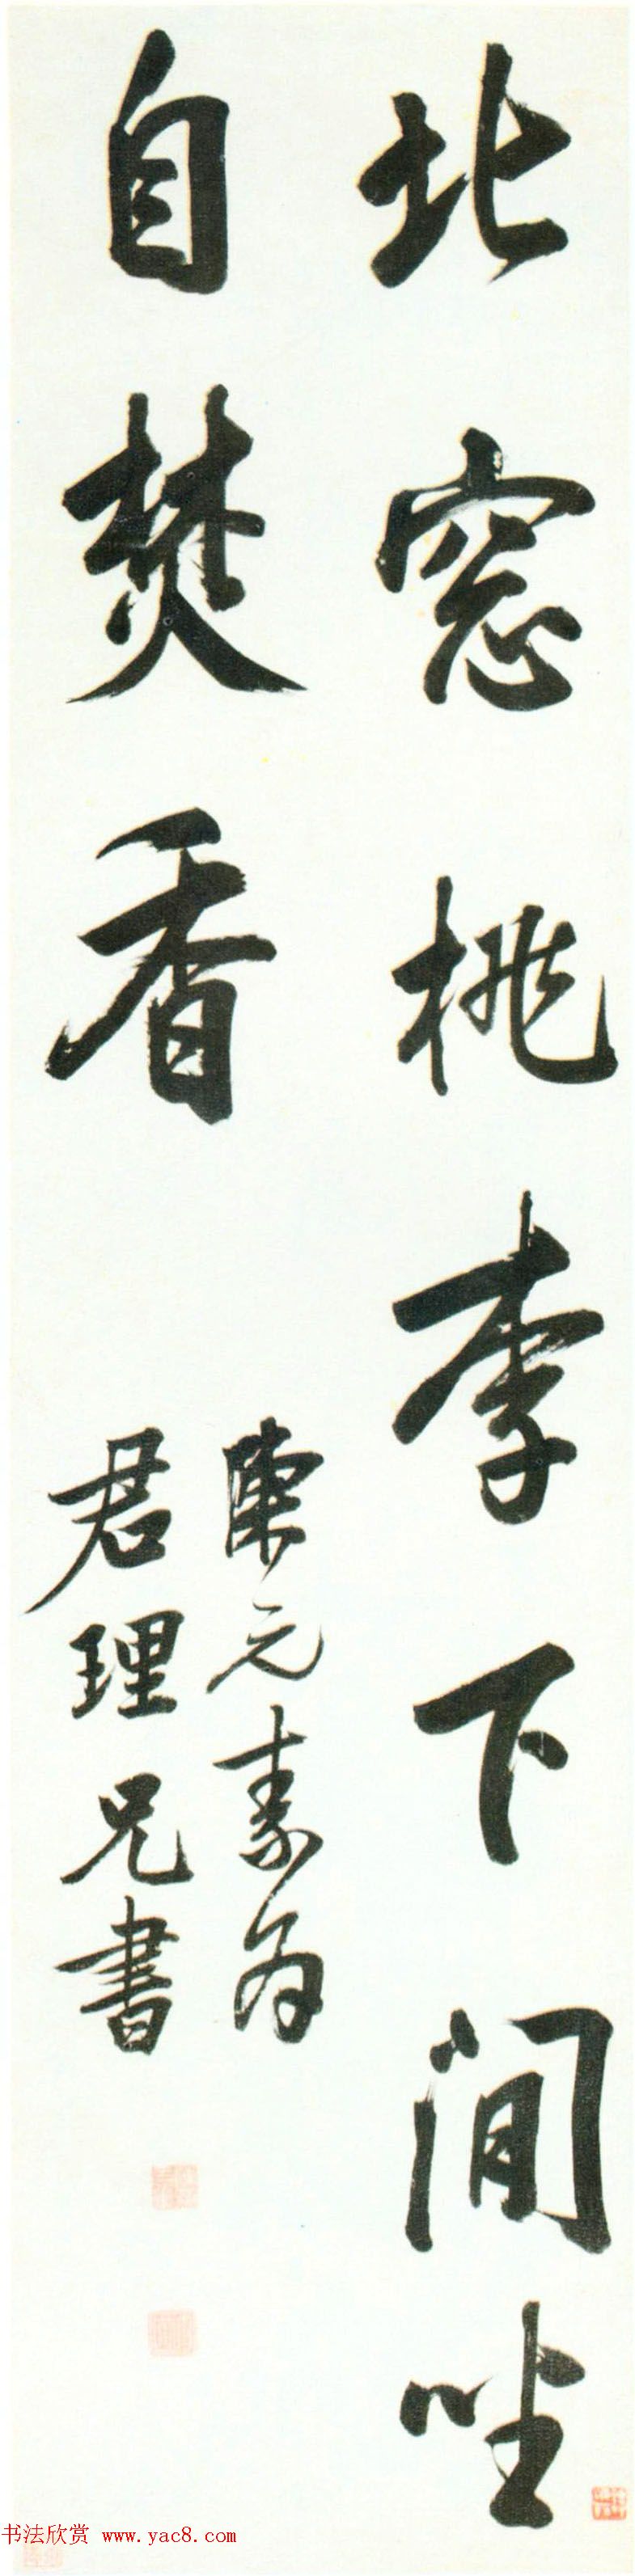 北窓桃李下閒坐
自焚香
陳元素為
君理兄書
书法欣赏 www.yac8.com